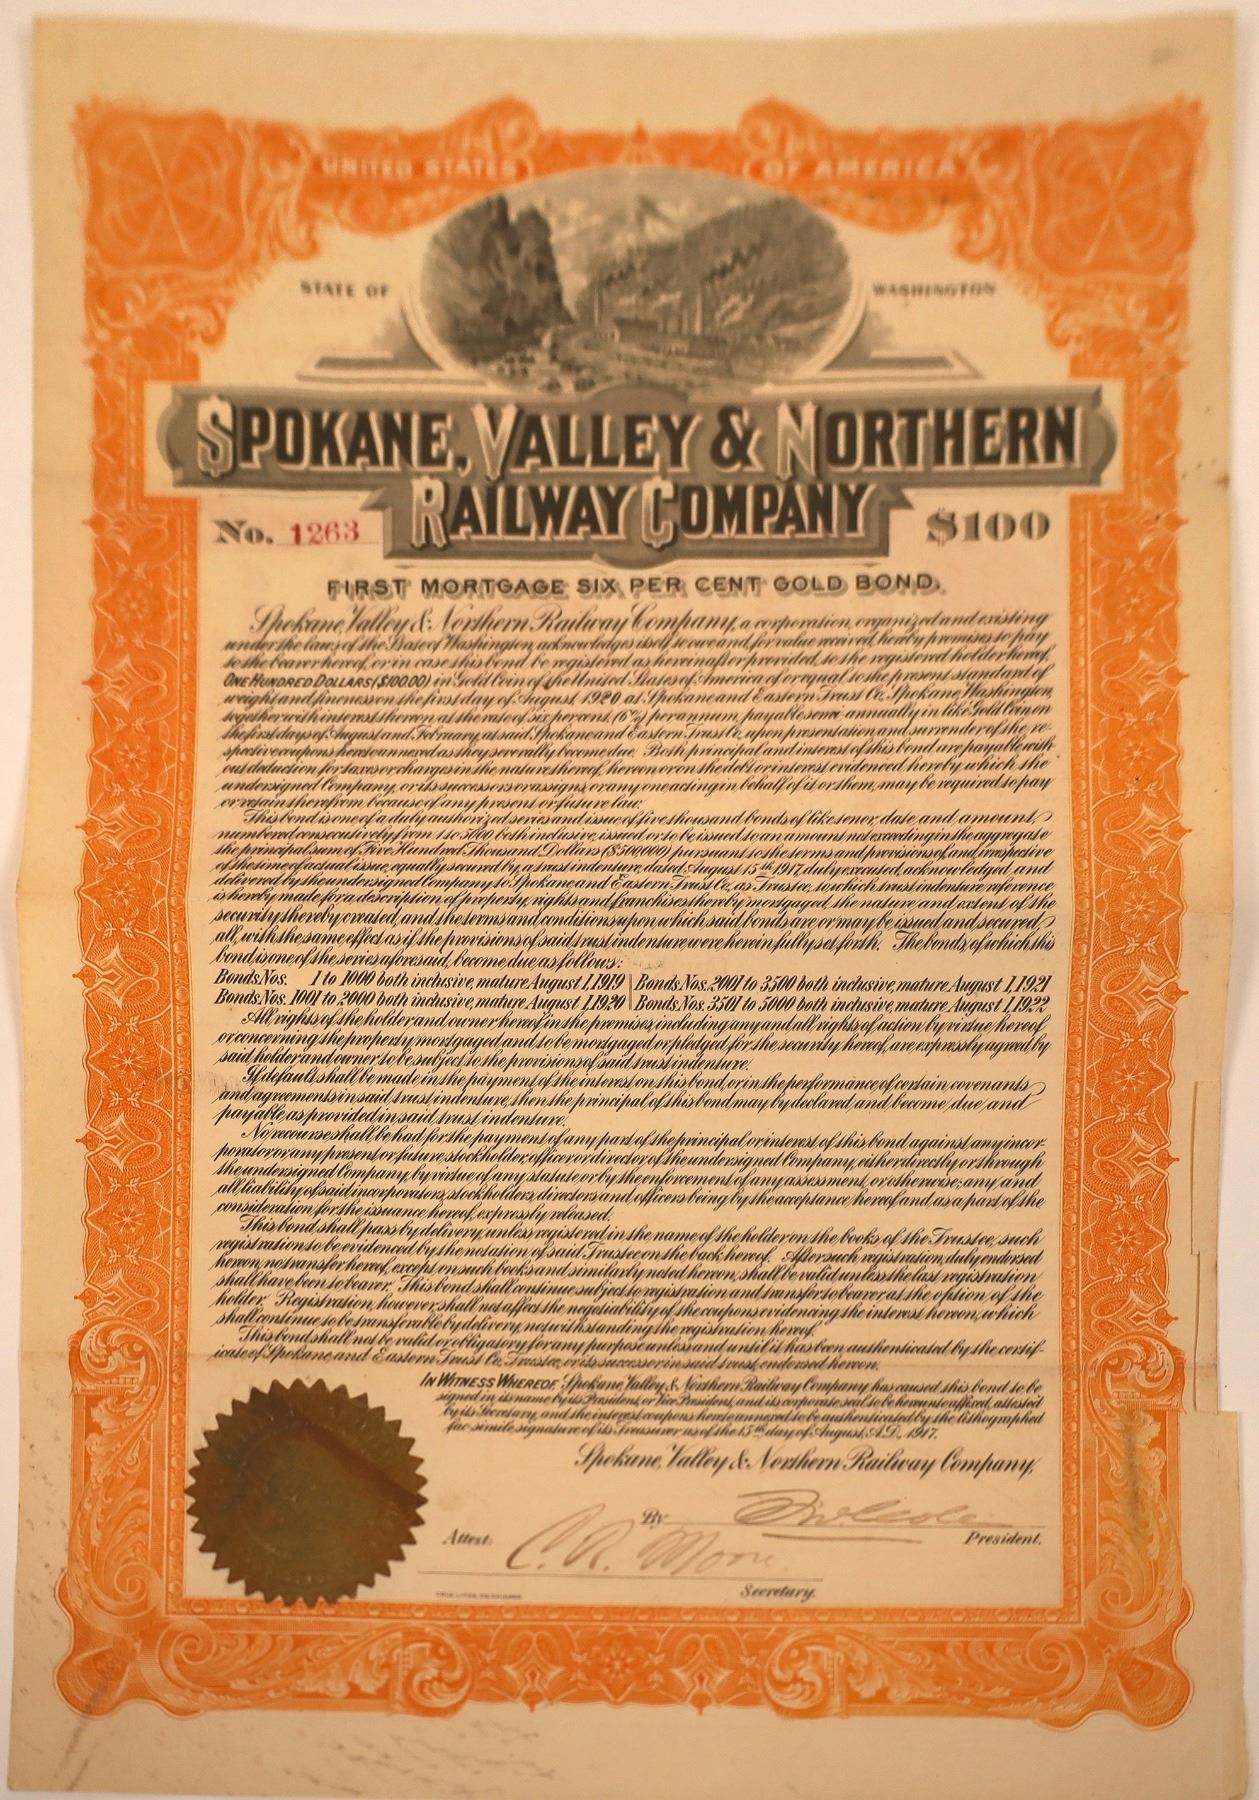 UNITED STATES OF AMERICA
STATE OF WASHINGTON
SPOKANE, VALLEY & NORTHERN
RAILWAY COMPANY
No. 1263 $100
FIRST MORTGAGE SIX PER CENT GOLD BOND.
Spokane, Valley & Northern Railway Company, a corporation, organized and existing
under the laws of the State of Washington, acknowledges itself to owe and, for value received, hereby promises to pay
to the bearer hereof, or in case this bond be registered as hereinafter provided, to the registered holder hereof,
ONE HUNDRED DOLLARS ($100.00) in Gold Coin of the United States of America of or equal to the present standard of
weight and fineness on the first day of August, 1920 at Spokane and Eastern Trust Co., Spokane, Washington,
together with interest thereon at the rate of six per cent, (6%) per annum, payable semi-annually in like Gold Coin on
the first days of August and February, at said Spokane and Eastern Trust Co., upon presentation and surrender of the re-
spective coupons hereto annexed as they severally become due. Both principal and interest of this bond are payable with-
out deduction for taxes or charges in the nature thereof, hereon or on the debt or interest evidenced hereby which the
undersigned Company, or its successors or assigns, or any one acting in behalf of it or them, may be required to pay
or retain therefrom because of any present or future law.
This bond is one of a duly authorized series and issue of five thousand bonds of like tenor, date and amount,
numbered consecutively from 1 to 5000 both inclusive, issued or to be issued to an amount not exceeding in the aggregate
the principal sum of Five Hundred Thousand Dollars ($500,000) pursuant to the terms and provisions of, and, irrespective
of the time of actual issue, equally secured by, a trust indenture, dated August 15th 1917, duly executed, acknowledged and
delivered by the undersigned Company to Spokane and Eastern Trust Co., as Trustee, to which trust indenture reference
is hereby made for a description of property, rights and franchises thereby mortgaged, the nature and extent of the
security thereby created, and the terms and conditions upon which said bonds are or may be issued and secured,
all, with the same effect as if the provisions of said trust indenture were herein fully set forth. The bonds, of which this
bond is one of the series aforesaid, become due as follows:
Bonds Nos. 1 to 1000 both inclusive, mature August 1, 1919 Bonds Nos. 2001 to 3500 both inclusive, mature August 1, 1921
Bonds Nos. 1001 to 2000 both inclusive, mature August 1, 1920 Bonds Nos. 3501 to 5000 both inclusive, mature August 1, 1922
All rights of the holder and owner hereof in the premises, including any and all rights of action by virtue hereof
or concerning the property mortgaged and to be mortgaged or pledged for the security hereof, are expressly agreed by
said holder and owner to be subject to the provisions of said trust indenture.
If default shall be made in the payment of the interest on this bond, or in the performance of certain covenants
and agreements in said trust indenture, then the principal of this bond may by declared and become due and
payable as provided in said trust indenture.
No recourse shall be had for the payment of any part of the principal or interest of this bond against any incor-
porator or any present or future stockholder, officer or director of the undersigned Company, either directly or through
the undersigned Company, by virtue of any statute or by the enforcement of any assessment, or otherwise; any and
all liability of said incorporators, stockholders, directors and officers being by the acceptance hereof and as a part of the
consideration for the issuance hereof, expressly released.
This bond shall pass by delivery, unless registered in the name of the holder on the books of the Trustee, such
registration to be evidenced by the notation of said Trustee on the back hereof. After such registration, duly endorsed
hereon, no transfer hereof, except on such books and similarly noted hereon, shall be valid unless the last registration
shall have been to bearer. This bond shall continue subject to registration and transfer to bearer at the option of the
holder. Registration, however, shall not affect the negotiability of the coupons evidencing the interest hereon, which
shall continue to be transferable by delivery, notwithstanding the registration hereof.
This bond shall not be valid or obligatory for any purpose unless and until it has been authenticated by the certif-
icate of Spokane and Eastern Trust Co., Trustee, or its successor in said trust, endorsed hereon.
IN WITNESS WHEREOF, Spokane, Valley & Northern Railway Company has caused this bond to be
signed in its name by its President, or Vice President, and its corporate seal to be hereunto affixed, attested
by its Secretary, and the interest coupons hereto annexed to be authenticated by the lithographed
fac-simile signature of its Treasurer as of the 15th day of August, A.D., 1917.
Spokane, Valley & Northern Railway Company,
By
President.
Attest: C. R. Moore
Secretary.